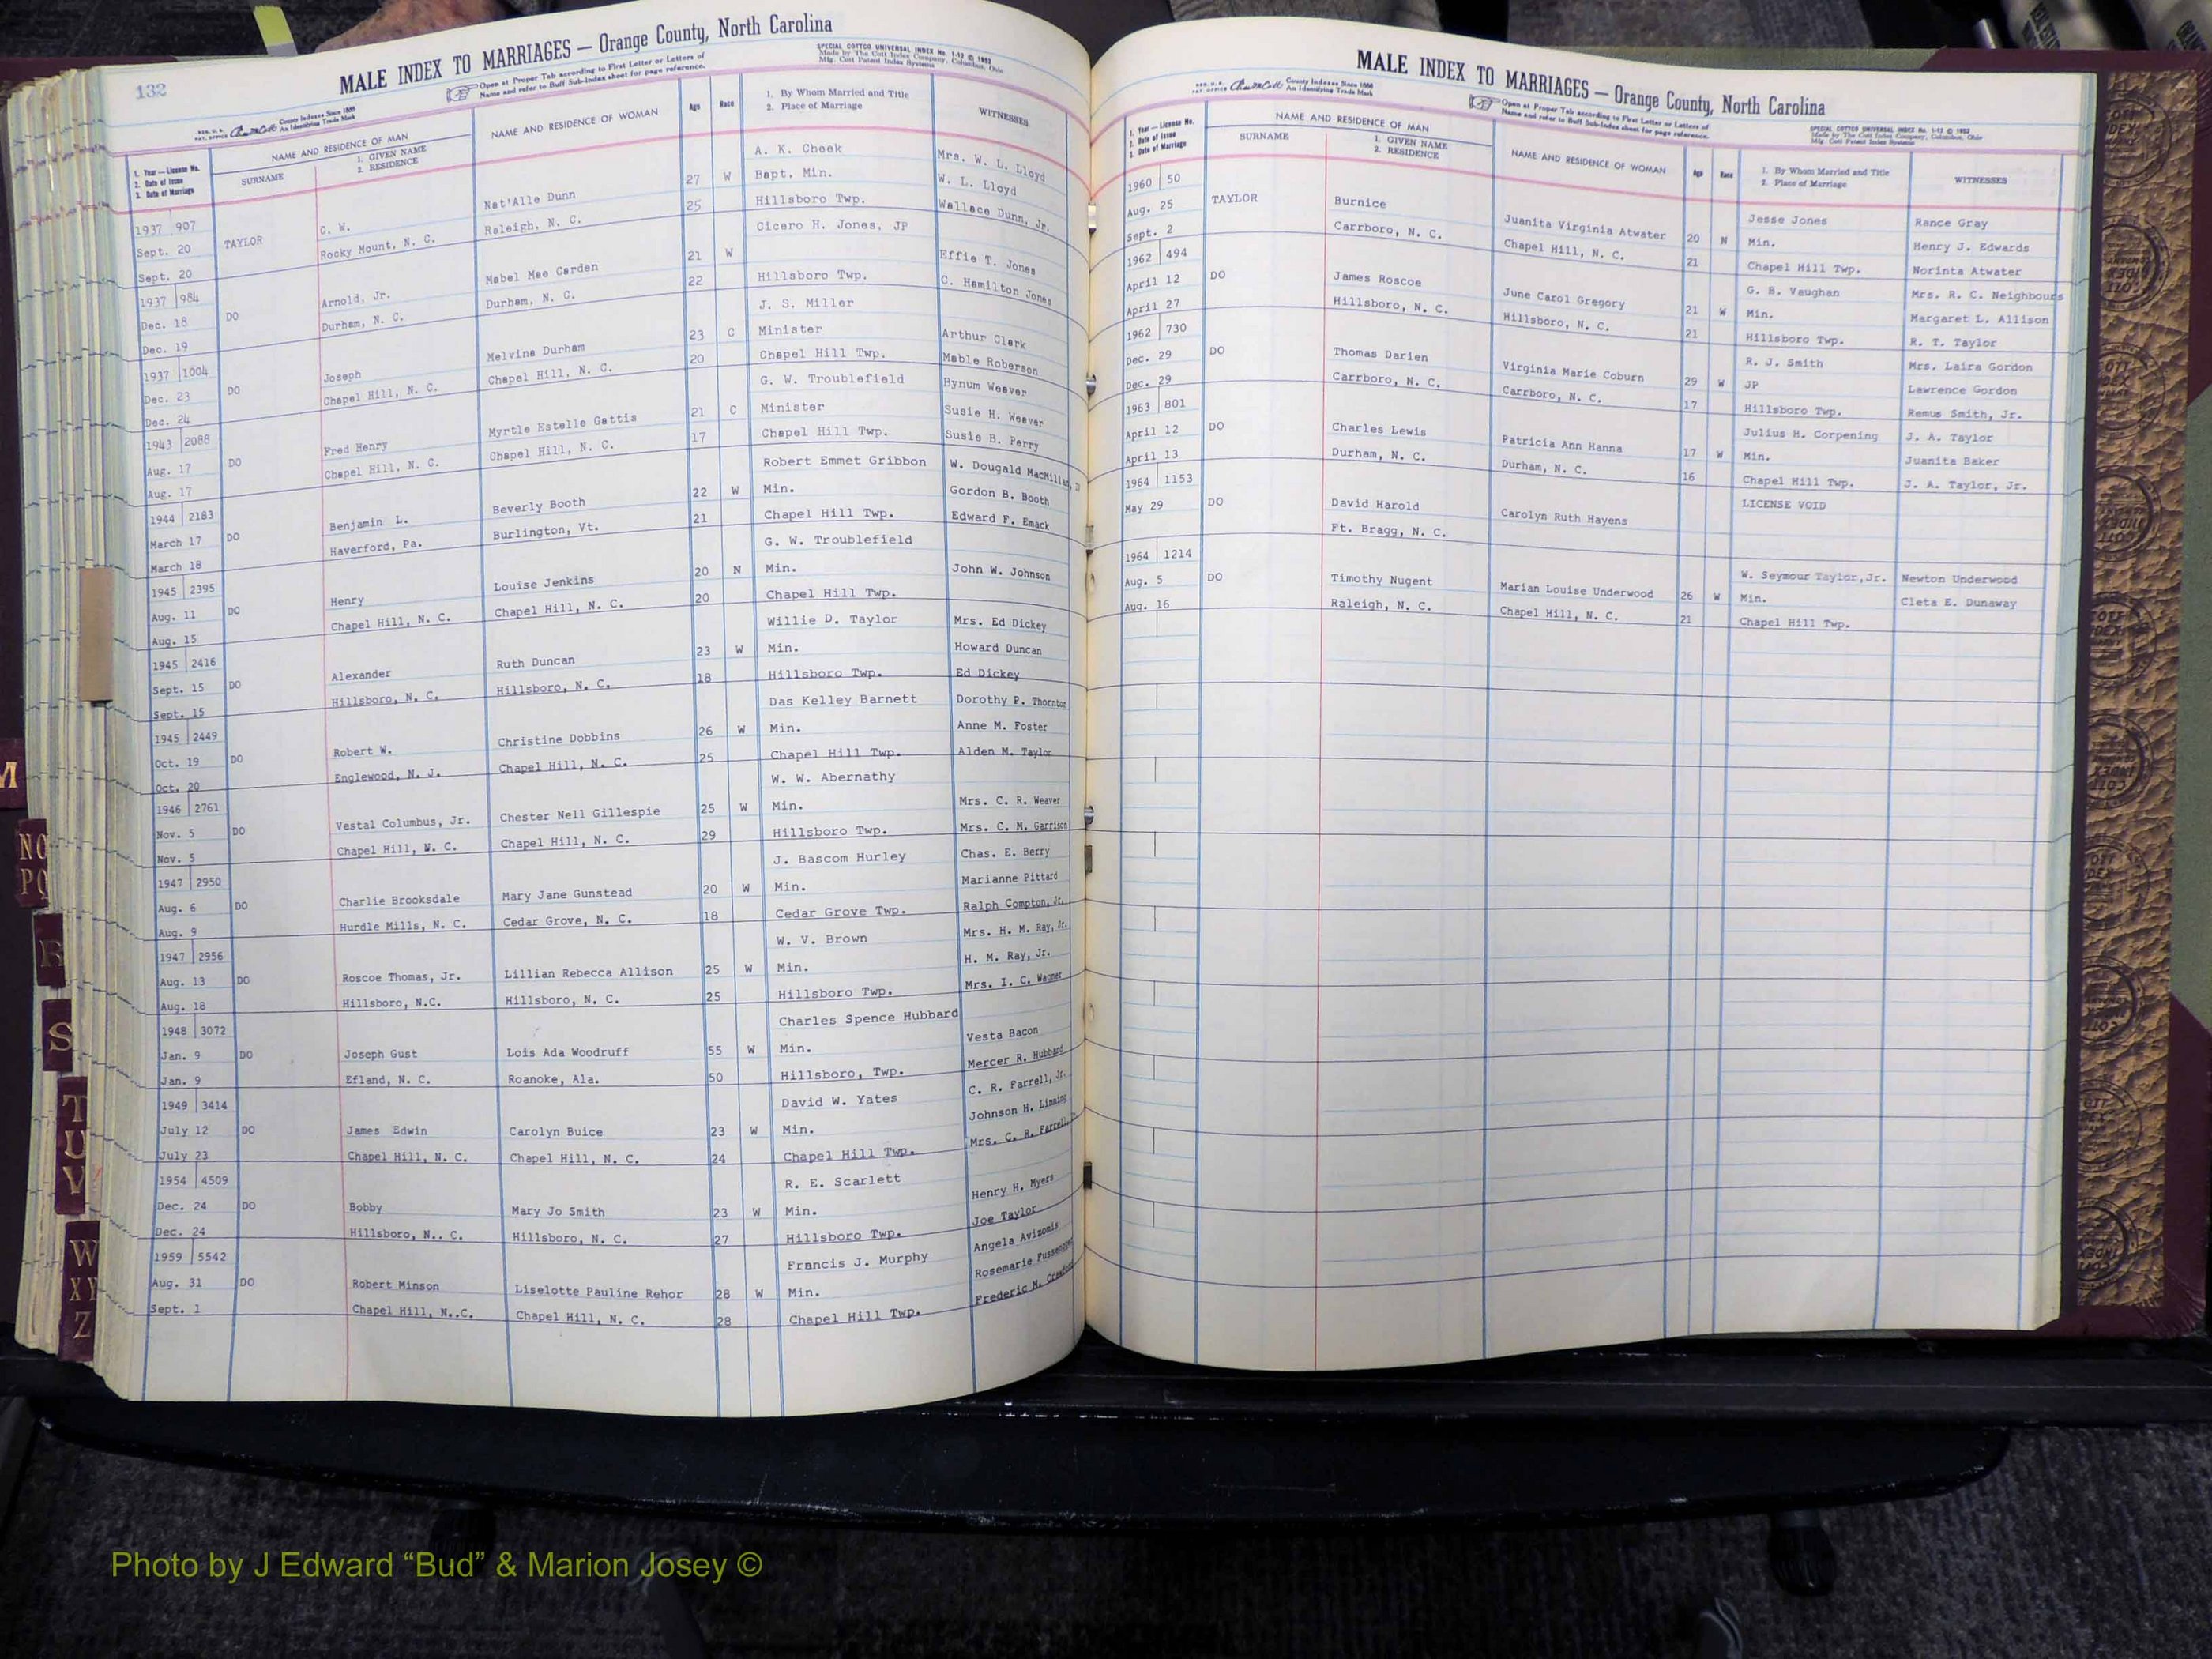 132
MALE INDEX TO MARRIAGES — Orange County, North Carolina
Open at Proper Tab according to First Letter or Letters of
Name and refer to Buff Sub-Index sheet for page reference.
SPECIAL COTTCO UNIVERSAL INDEX No. 1-12 © 1952
Made by The Cott Index Company, Columbus, Ohio
Mfg. Cott Patent Index Systems
County Indexes Since 1888
An Identifying Trade Mark
1. Year — License No.
2. Date of Issue
3. Date of Marriage
NAME AND RESIDENCE OF MAN
SURNAME
1. GIVEN NAME
2. RESIDENCE
NAME AND RESIDENCE OF WOMAN
Age
Race
1. By Whom Married and Title
2. Place of Marriage
WITNESSES
1937 907 A. K. Cheek Mrs. W. L. Lloyd
Sept. 20 TAYLOR C. W. Nat'Alle Dunn 27 W Bapt. Min. W. L. Lloyd
Sept. 20 Rocky Mount, N. C. Raleigh, N. C. 25 Hillsboro Twp. Wallace Dunn, Jr.
1937 984 Cicero H. Jones, JP
Dec. 18 DO Arnold, Jr. Mabel Mae Carden 21 W Effie T. Jones
Dec. 19 Durham, N. C. Durham, N. C. 22 Hillsboro Twp. C. Hamilton Jones
1937 1004 J. S. Miller
Dec. 23 DO Joseph Melvina Durham 23 C Minister Arthur Clark
Dec. 24 Chapel Hill, N. C. Chapel Hill, N. C. 20 Chapel Hill Twp. Mable Roberson
1943 2088 G. W. Troublefield Bynum Weaver
Aug. 17 DO Fred Henry Myrtle Estelle Gattis 21 C Minister Susie H. Weaver
Aug. 17 Chapel Hill, N. C. Chapel Hill, N. C. 17 Chapel Hill Twp. Susie B. Perry
1944 2183 Robert Emmet Gribbon W. Dougald MacMillan,
March 17 DO Benjamin L. Beverly Booth 22 W Min. Gordon B. Booth
March 18 Haverford, Pa. Burlington, Vt. 21 Chapel Hill Twp. Edward F. Emack
1945 2395 G. W. Troublefield
Aug. 11 DO Henry Louise Jenkins 20 N Min. John W. Johnson
Aug. 15 Chapel Hill, N. C. Chapel Hill, N. C. 20 Chapel Hill Twp.
1945 2416 Willie D. Taylor Mrs. Ed Dickey
Sept. 15 DO Alexander Ruth Duncan 23 W Min. Howard Duncan
Sept. 15 Hillsboro, N. C. Hillsboro, N. C. 18 Hillsboro Twp. Ed Dickey
1945 2449 Das Kelley Barnett Dorothy P. Thornton
Oct. 19 DO Robert W. Christine Dobbins 26 W Min. Anne M. Foster
Oct. 20 Englewood, N. J. Chapel Hill, N. C. 25 Chapel Hill Twp. Alden M. Taylor
1946 2761 W. W. Abernathy
Nov. 5 DO Vestal Columbus, Jr. Chester Nell Gillespie 25 W Min. Mrs. C. R. Weaver
Nov. 5 Chapel Hill, N. C. Chapel Hill, N. C. 29 Hillsboro Twp. Mrs. C. M. Garrison
1947 2950 J. Bascom Hurley Chas. E. Berry
Aug. 6 DO Charlie Brooksdale Mary Jane Gunstead 20 W Min. Marianne Pittard
Aug. 9 Hurdle Mills, N. C. Cedar Grove, N. C. 18 Cedar Grove Twp. Ralph Compton, Jr.
1947 2956 W. V. Brown Mrs. H. M. Ray, Jr.
Aug. 13 DO Roscoe Thomas, Jr. Lillian Rebecca Allison 25 W Min. H. M. Ray, Jr.
Aug. 18 Hillsboro, N.C. Hillsboro, N. C. 25 Hillsboro Twp. Mrs. I. C. Wagner
1948 3072 Charles Spence Hubbard
Jan. 9 DO Joseph Gust Lois Ada Woodruff 55 W Min. Vesta Bacon
Jan. 9 Efland, N. C. Roanoke, Ala. 50 Hillsboro, Twp. Mercer R. Hubbard
1949 3414 David W. Yates C. R. Farrell, Jr.
July 12 DO James Edwin Carolyn Buice 23 W Min. Johnson H. Linning
July 23 Chapel Hill, N. C. Chapel Hill, N. C. 24 Chapel Hill Twp. Mrs. C. R. Farrell,
1954 4509 R. E. Scarlett
Dec. 24 DO Bobby Mary Jo Smith 23 W Min. Henry H. Myers
Dec. 24 Hillsboro, N.. C. Hillsboro, N. C. 27 Hillsboro Twp. Joe Taylor
1959 5542 Francis J. Murphy Angela Avizonis
Aug. 31 DO Robert Minson Liselotte Pauline Rehor 28 W Min. Rosemarie
Sept. 1 Chapel Hill, N..C. Chapel Hill, N. C. 28 Chapel Hill Twp. Frederic M.
MALE INDEX TO MARRIAGES — Orange County, North Carolina
County Indexes Since 1888
An Identifying Trade Mark
Open at Proper Tab according to First Letter or Letters of
Name and refer to Buff Sub-Index sheet for page reference.
SPECIAL COTTCO UNIVERSAL INDEX No. 1-12 © 1952
Made by The Cott Index Company, Columbus, Ohio
Mfg. Cott Patent Index Systems
1. Year — License No.
2. Date of Issue
3. Date of Marriage
NAME AND RESIDENCE OF MAN
SURNAME
1. GIVEN NAME
2. RESIDENCE
NAME AND RESIDENCE OF WOMAN
Age
Race
1. By Whom Married and Title
2. Place of Marriage
WITNESSES
1960 50 Jesse Jones Rance Gray
Aug. 25 TAYLOR Burnice Juanita Virginia Atwater 20 N Min. Henry J. Edwards
Sept. 2 Carrboro, N. C. Chapel Hill, N. C. 21 Chapel Hill Twp. Norinta Atwater
1962 494 G. B. Vaughan Mrs. R. C. Neighbours
April 12 DO James Roscoe June Carol Gregory 21 W Min. Margaret L. Allison
April 27 Hillsboro, N. C. Hillsboro, N. C. 21 Hillsboro Twp. R. T. Taylor
1962 730 R. J. Smith Mrs. Laira Gordon
Dec. 29 DO Thomas Darien Virginia Marie Coburn 29 W JP Lawrence Gordon
Dec. 29 Carrboro, N. C. Carrboro, N. C. 17 Hillsboro Twp. Remus Smith, Jr.
1963 801 Julius H. Corpening J. A. Taylor
April 12 DO Charles Lewis Patricia Ann Hanna 17 W Min. Juanita Baker
April 13 Durham, N. C. Durham, N. C. 16 Chapel Hill Twp. J. A. Taylor, Jr.
1964 1153 LICENSE VOID
May 29 DO David Harold Carolyn Ruth Hayens
Ft. Bragg, N. C.
1964 1214 W. Seymour Taylor,Jr. Newton Underwood
Aug. 5 DO Timothy Nugent Marian Louise Underwood 26 W Min. Cleta E. Dunaway
Aug. 16 Raleigh, N. C. Chapel Hill, N. C. 21 Chapel Hill Twp.
M
NO
PQ
R
S
T
U
V
W
XY
Z
Photo by J Edward “Bud” & Marion Josey ©